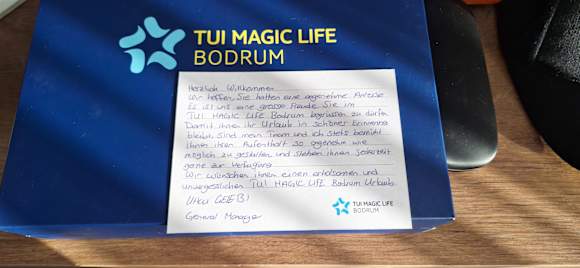 TUI MAGIC LIFE
BODRUM
Herzlich Willkommen
Wir hoffen, Sie hatten eine angenehme Anreise
Es ist uns eine grosse Freude Sie im
TUI MAGIC LIFE Bodrum begrüssen zu dürfen
Damit ihnen ihr Urlaub in schöner Erinnerung
bleibt, sind mein Team und ich stets bemüht
Ihnen ihren Aufenthalt so angenehm wie
möglich zu gestalten, und stehen ihnen jederzeit
gerne zur Verfügung
Wir wünschen ihnen einen erholsamen und
unvergesslichen TUI MAGIC LIFE Bodrum Urlaub.
General Manager
TUI MAGIC LIFE
BODRUM